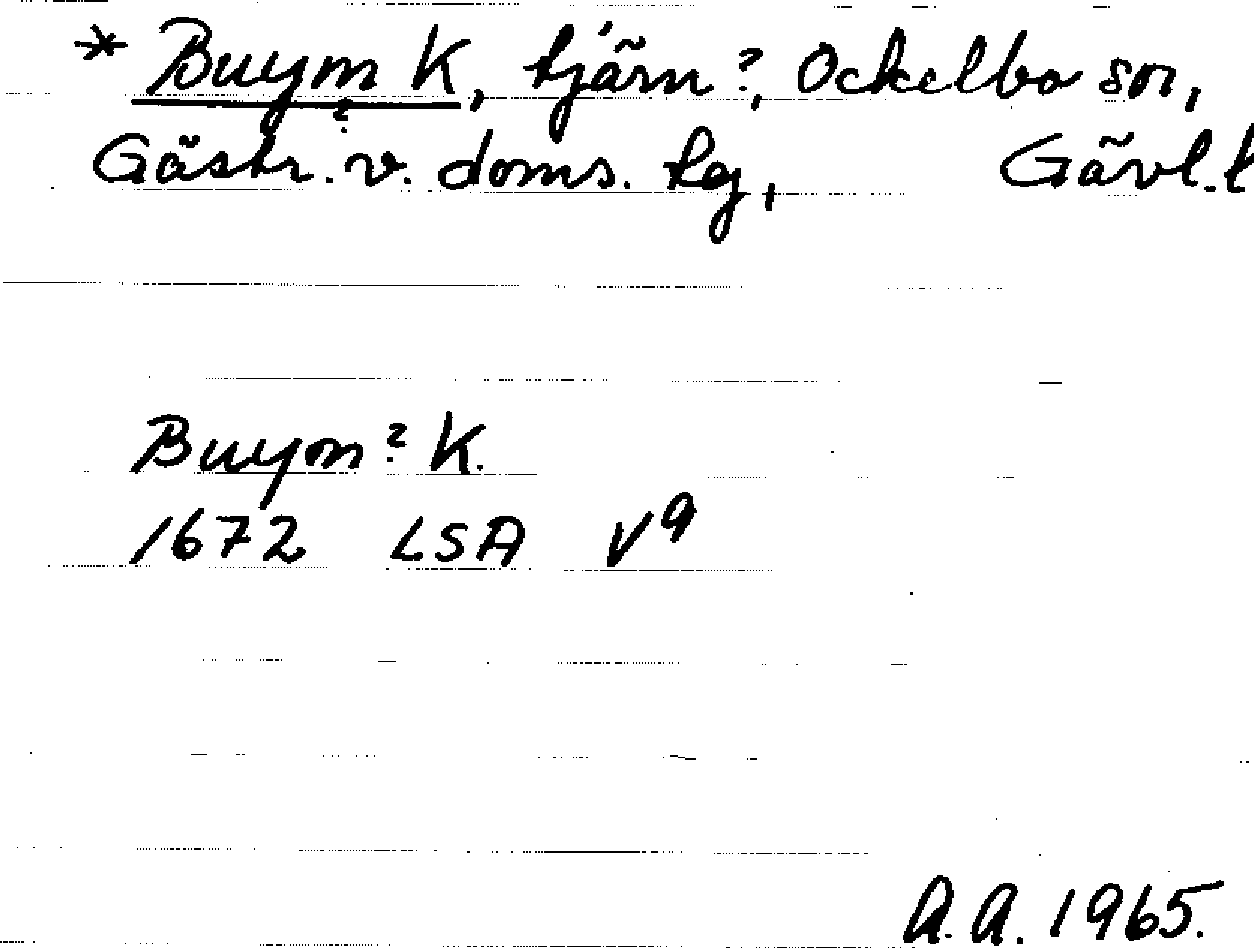 * Buym K, tjärn?, Ockelbo sn,
?
Gästr. v. doms. hg, Gävl. l
Buym? K.
1672 LSA V9
A.A. 1965.